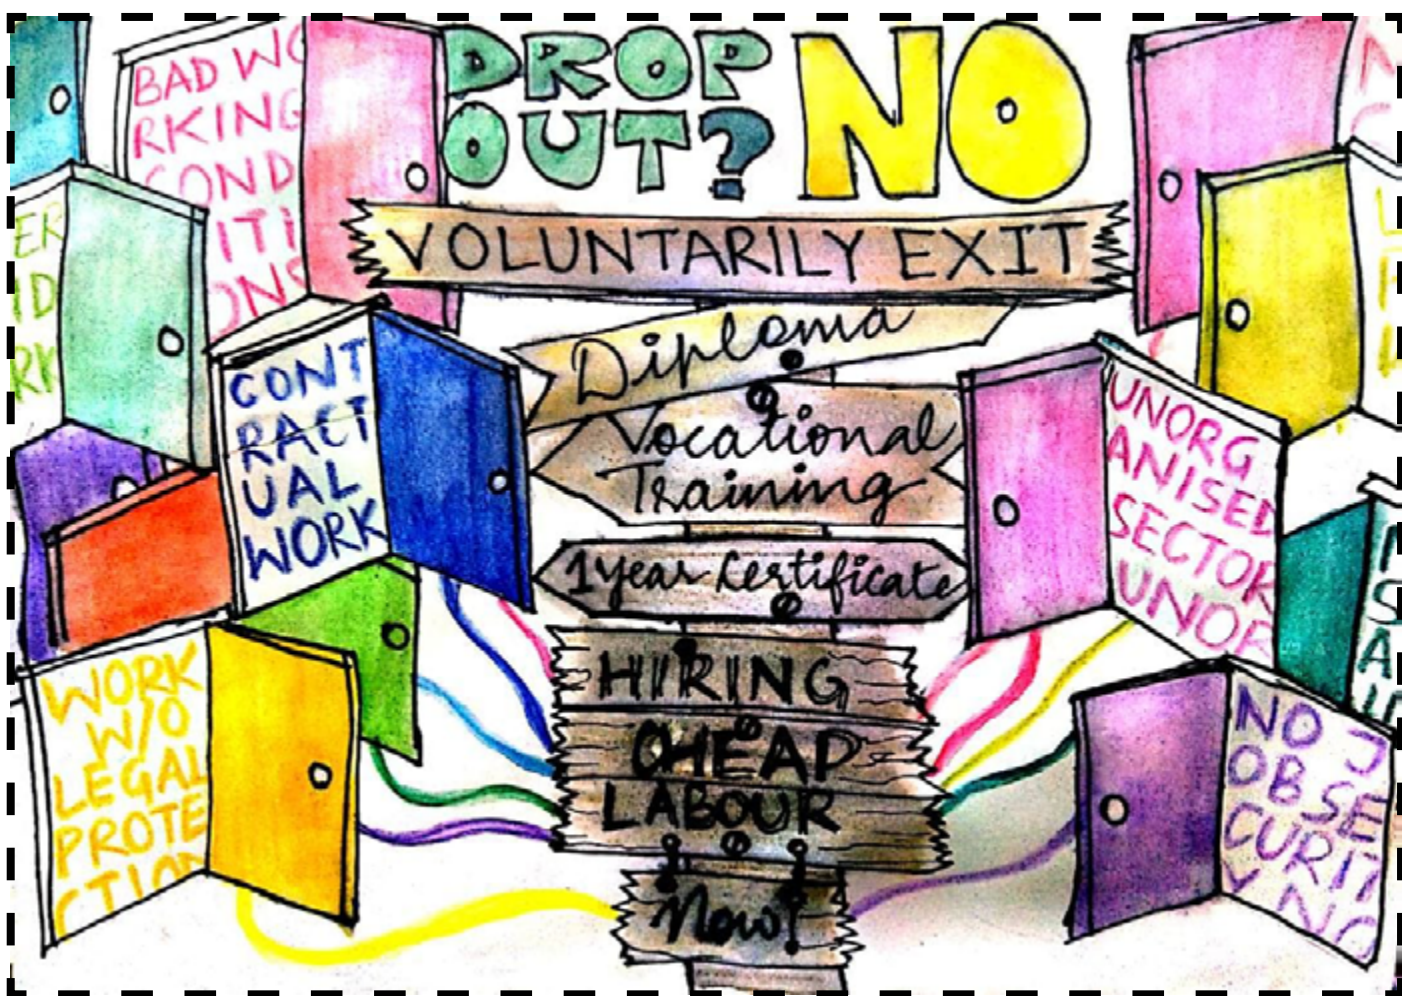 DROP
OUT?
NO
VOLUNTARILY EXIT
Diploma
Vocational
Training
1 year Certificate
HIRING
CHEAP
LABOUR
Now!
BAD WO
RKING
COND
ITI
ONS
CONT
RACT
UAL
WORK
WORK
W/O
LEGAL
PROTE
CTION
UNORG
ANISED
SECTOR
UNOR
NO J
OB SE
CURIT
Y NO